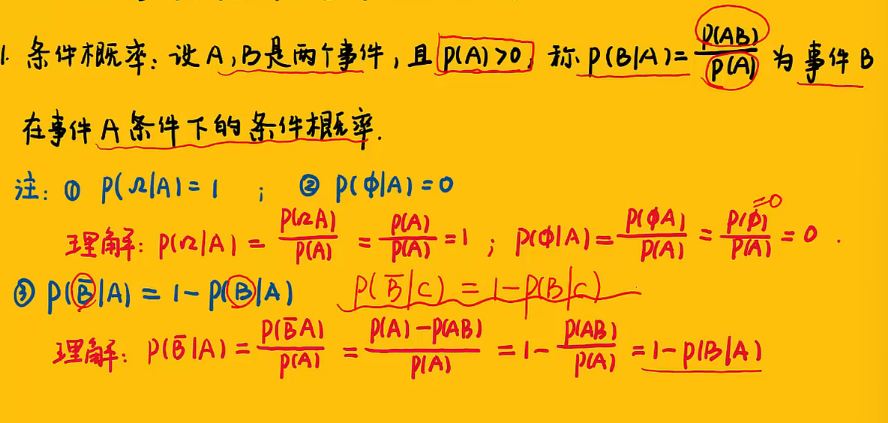 1. 条件概率：设A,B是两个事件，且P(A)>0，称P(B|A)=P(AB)/P(A)为事件B
在事件A条件下的条件概率.
注：① P(Ω|A)=1 ； ② P(φ|A)=0
理解：P(Ω|A)=P(ΩA)/P(A)=P(A)/P(A)=1；P(φ|A)=P(φA)/P(A)=P(φ)/P(A)=0. =0
③ P(B̅|A)=1-P(B|A) P(B̅|C)=1-P(B|C)
理解：P(B̅|A)=P(B̅A)/P(A)=P(A)-P(AB)/P(A)=1-P(AB)/P(A)=1-P(B|A)